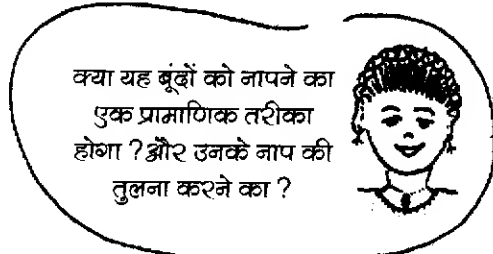 क्या यह बूंदों को नापने का
एक प्रामाणिक तरीका
होगा ? और उनके नाप की
तुलना करने का ?